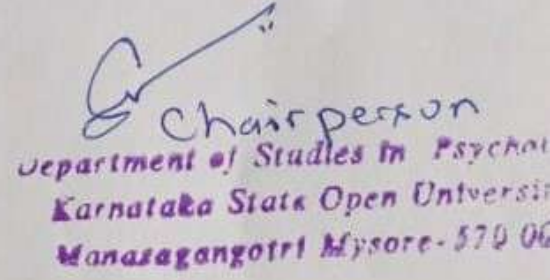 Chairperson
Department of Studies in Psychol
Karnataka State Open Universit
Manasagangotri Mysore-570 00